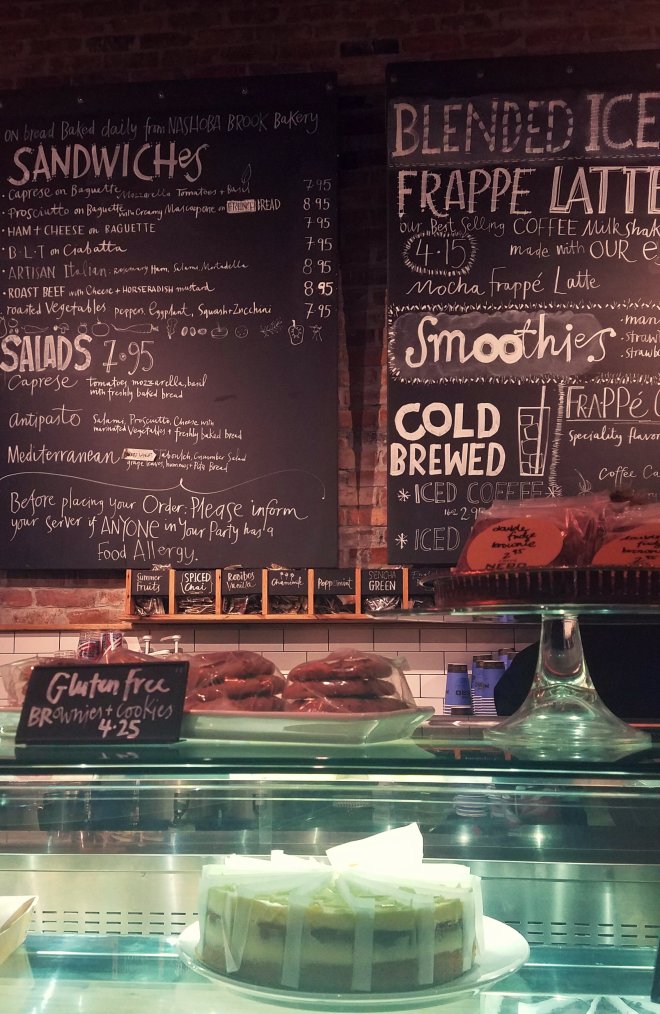 on bread Baked daily from NASHOBA BROOK Bakery
SANDWICHes
• Caprese on Baguette Mozzarella Tomatoes + Basil 7.95
• Prosciutto on Baguette with Creamy Mascarpone on FRENCH BREAD 8.95
• HAM + CHEESE on BAGUETTE 7.95
• B•L•T on Ciabatta 7.95
• ARTISAN Italian. Rosemary Ham, Salami, Mortadella 8.95
• ROAST BEEF with Cheese + HORSERADISH mustard 8.95
roasted Vegetables peppers, Eggplant, Squash + Zucchini 7.95
SALADS 7.95
Caprese Tomatoes, mozzarella, basil
with freshly baked bread
antipasto Salami, Prosciutto, Cheese with
marinated Vegetables + freshly baked bread
Mediterranean Tabouleh, Cucumber Salad
grape leaves, hummus + Pita Bread
Before placing your Order. Please inform
your Server if ANYONE in Your Party has a
Food Allergy.
BLENDED ICE
FRAPPE LATTE
our Best Selling COFFEE Milkshak
4.15 made with OUR e
Mocha Frappé Latte
Smoothies
• man
• straw
• strawb
COLD
BREWED
FRAPPé C
Speciality flavor
Coffee Ca
* ICED COFFEE *
2.95
* ICED
double
fudge
brownie
2.95
NERO
double
fudge
brownie
2.95
Summer
Fruits
SPICED
Chai
Rooibos
Vanilla
Chamomile
Peppermint
SENCHA
GREEN
Gluten Free
BRownies + Cookies
4.25